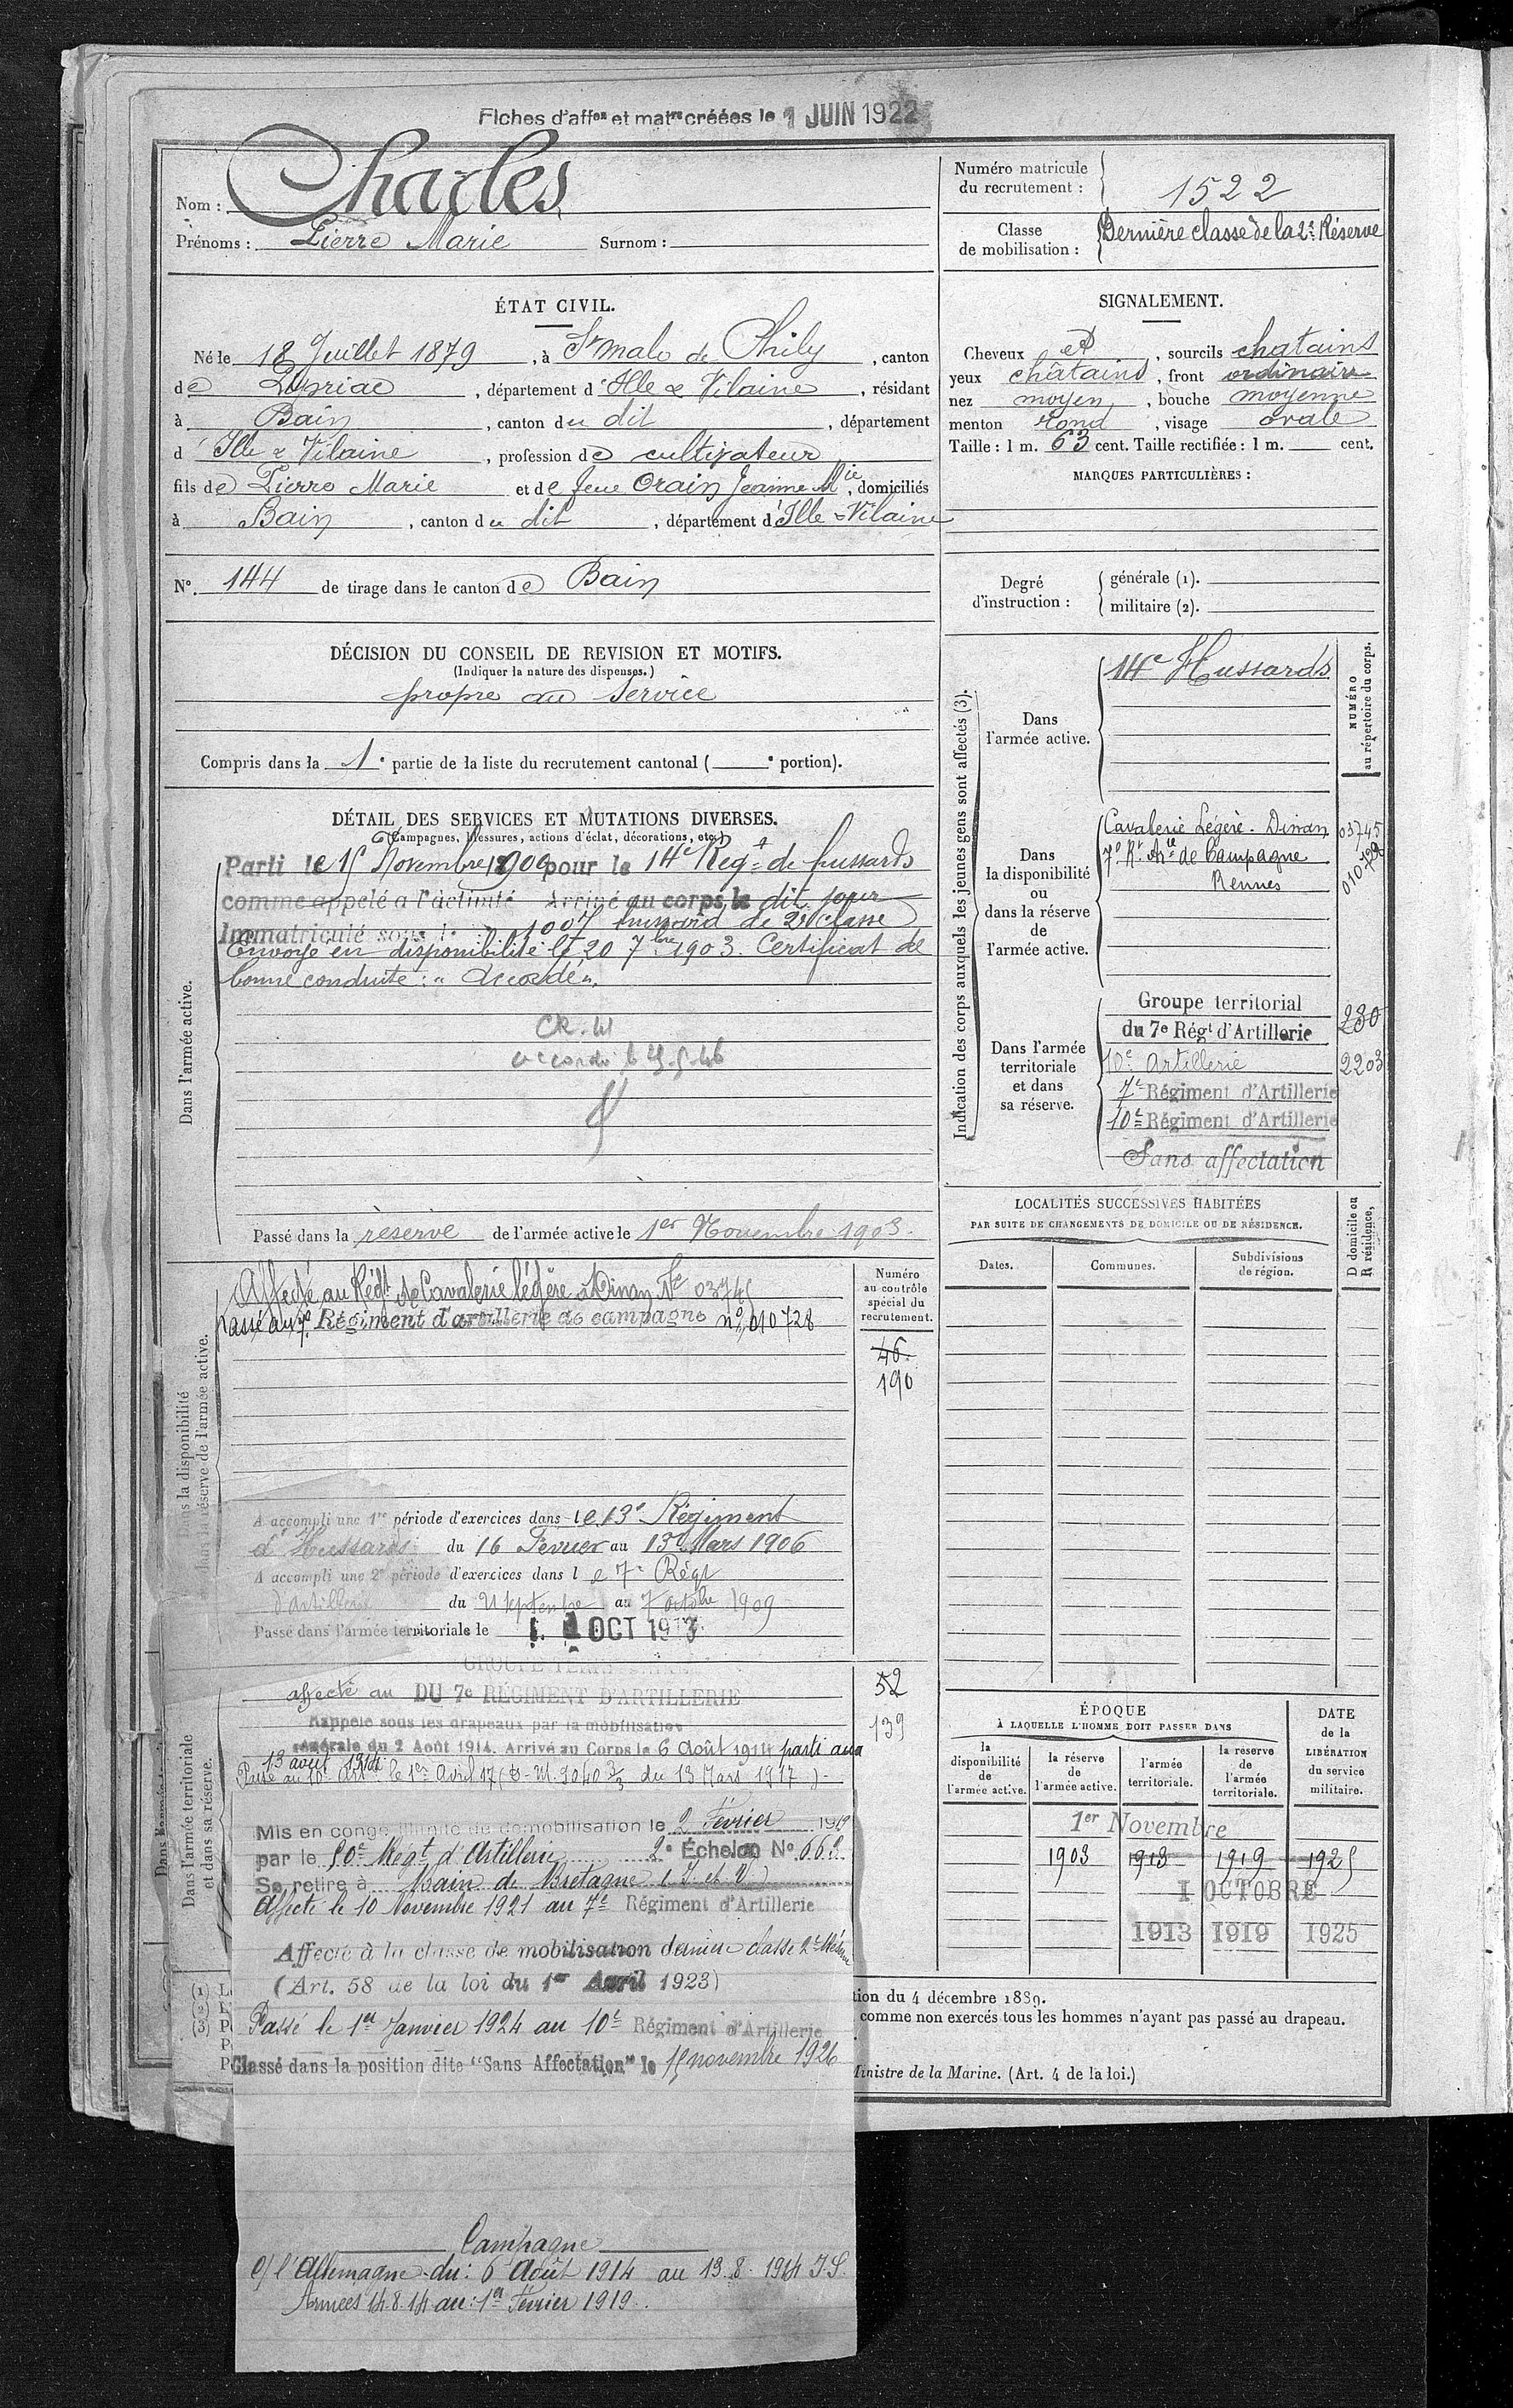 Fiches d'affon et matre créées le 1 JUIN 1922
Nom : Charles
Prénoms : Pierre Marie Surnom :
Numéro matricule du recrutement : 1522
Classe de mobilisation : Dernière classe de la 2e Réserve
ÉTAT CIVIL.
Né le 18 Juillet 1879, à St malo de Phily, canton
de Pipriac, département d'Ille & Vilaine, résidant
à Bain, canton du dit, département
d'Ille & Vilaine, profession de cultivateur
fils de Pierre Marie et de feue Orain Jeanne Mie, domiciliés
à Bain, canton du dit, département d'Ille & Vilaine
N°. 144 de tirage dans le canton de Bain
SIGNALEMENT.
Cheveux et, sourcils chatains
yeux chatains, front ordinaire
nez moyen, bouche moyenne
menton rond, visage ovale
Taille : 1 m. 63 cent. Taille rectifiée : 1 m. cent.
MARQUES PARTICULIÈRES :
Degré d'instruction :
générale (1).
militaire (2).
DÉCISION DU CONSEIL DE REVISION ET MOTIFS.
(Indiquer la nature des dispenses.)
propre au service
Compris dans la 1e partie de la liste du recrutement cantonal ( e portion).
DÉTAIL DES SERVICES ET MUTATIONS DIVERSES.
(Campagnes, blessures, actions d'éclat, décorations, etc.)
Dans l'armée active.
Parti le 15 Novembre 1900 pour le 14e Regt de hussards
comme appelé a l'activité Arrivé au corps le dit jour
Immatriculé sous le 1007 hussard de 2e classe
Envoyé en disponibilité le 20 7bre 1903. Certificat de
bonne conduite : "Accordé".
Passé dans la réserve de l'armée active le 1er Novembre 1903.
Indication des corps auxquels les jeunes gens sont affectés (3).
NUMÉRO au répertoire du corps.
Dans l'armée active.
14e Hussards
Dans la disponibilité ou dans la réserve de l'armée active.
Cavalerie Légère - Dinan 03745
7e Rt Arie de Campagne 010728
Rennes
Dans l'armée territoriale et dans sa réserve.
Groupe territorial
du 7e Régt d'Artillerie 230
10e Artillerie 2203
7e Régiment d'Artillerie
10e Régiment d'Artillerie
Sans affectation
LOCALITÉS SUCCESSIVES HABITÉES
PAR SUITE DE CHANGEMENTS DE DOMICILE OU DE RÉSIDENCE.
Dates. Communes. Subdivisions de région.
D domicile ou R résidence.
Dans la disponibilité
dans la réserve de l'armée active.
Affecté au Régt de Cavalerie légère à Dinan No 03745
Passé au 7e Régiment d'artillerie de campagne no 010728
Numéro au contrôle spécial du recrutement.
46
190
A accompli une 1re période d'exercices dans le 13e Régiment
d'Hussards du 16 Fevrier au 13 Mars 1906
A accompli une 2e période d'exercices dans le 7e Régt
d'artillerie du 21 septembre au 7 octobre 1909
Passé dans l'armée territoriale le 1 OCT 1913
Dans l'armée territoriale et dans sa réserve.
GROUPE TERRITORIAL
affecté au DU 7e RÉGIMENT D'ARTILLERIE
52
139
Rappelé sous les drapeaux par la mobilisation
générale du 2 Août 1914. Arrivé au Corps le 6 Août 1914 parti aux
13 août 1914
Passé au 10e Artie le 1er Avril 17 (D-M. 9040 3/3 du 13 Mars 1917)
Mis en congé illimité de démobilisation le 2 Février 1919
par le 50e Régt d'Artillerie 2e Échelon No 663
Se retire à Bain de Bretagne (I. et V.)
Affecté le 10 Novembre 1921 au 7e Régiment d'Artillerie
Affecté à la classe de mobilisation dernière classe 2e Réserve
(Art. 58 de la loi du 1er Avril 1923)
Passé le 1er Janvier 1924 au 10e Régiment d'Artillerie
Classé dans la position dite "Sans Affectation" le 15 novembre 1926
ÉPOQUE
À LAQUELLE L'HOMME DOIT PASSER DANS
la disponibilité de l'armée active.
la réserve de l'armée active.
l'armée territoriale.
la réserve de l'armée territoriale.
DATE de la LIBÉRATION du service militaire.
1er Novembre
1903 1913 1919 1925
1 OCTOBRE
1913 1919 1925
tion du 4 décembre 1889.
comme non exercés tous les hommes n'ayant pas passé au drapeau.
Ministre de la Marine. (Art. 4 de la loi.)
Campagne
c/ l'Allemagne du : 6 Août 1914 au 13.8.1914 I.S.
Armées 14.8.14 au : 1er Février 1919.